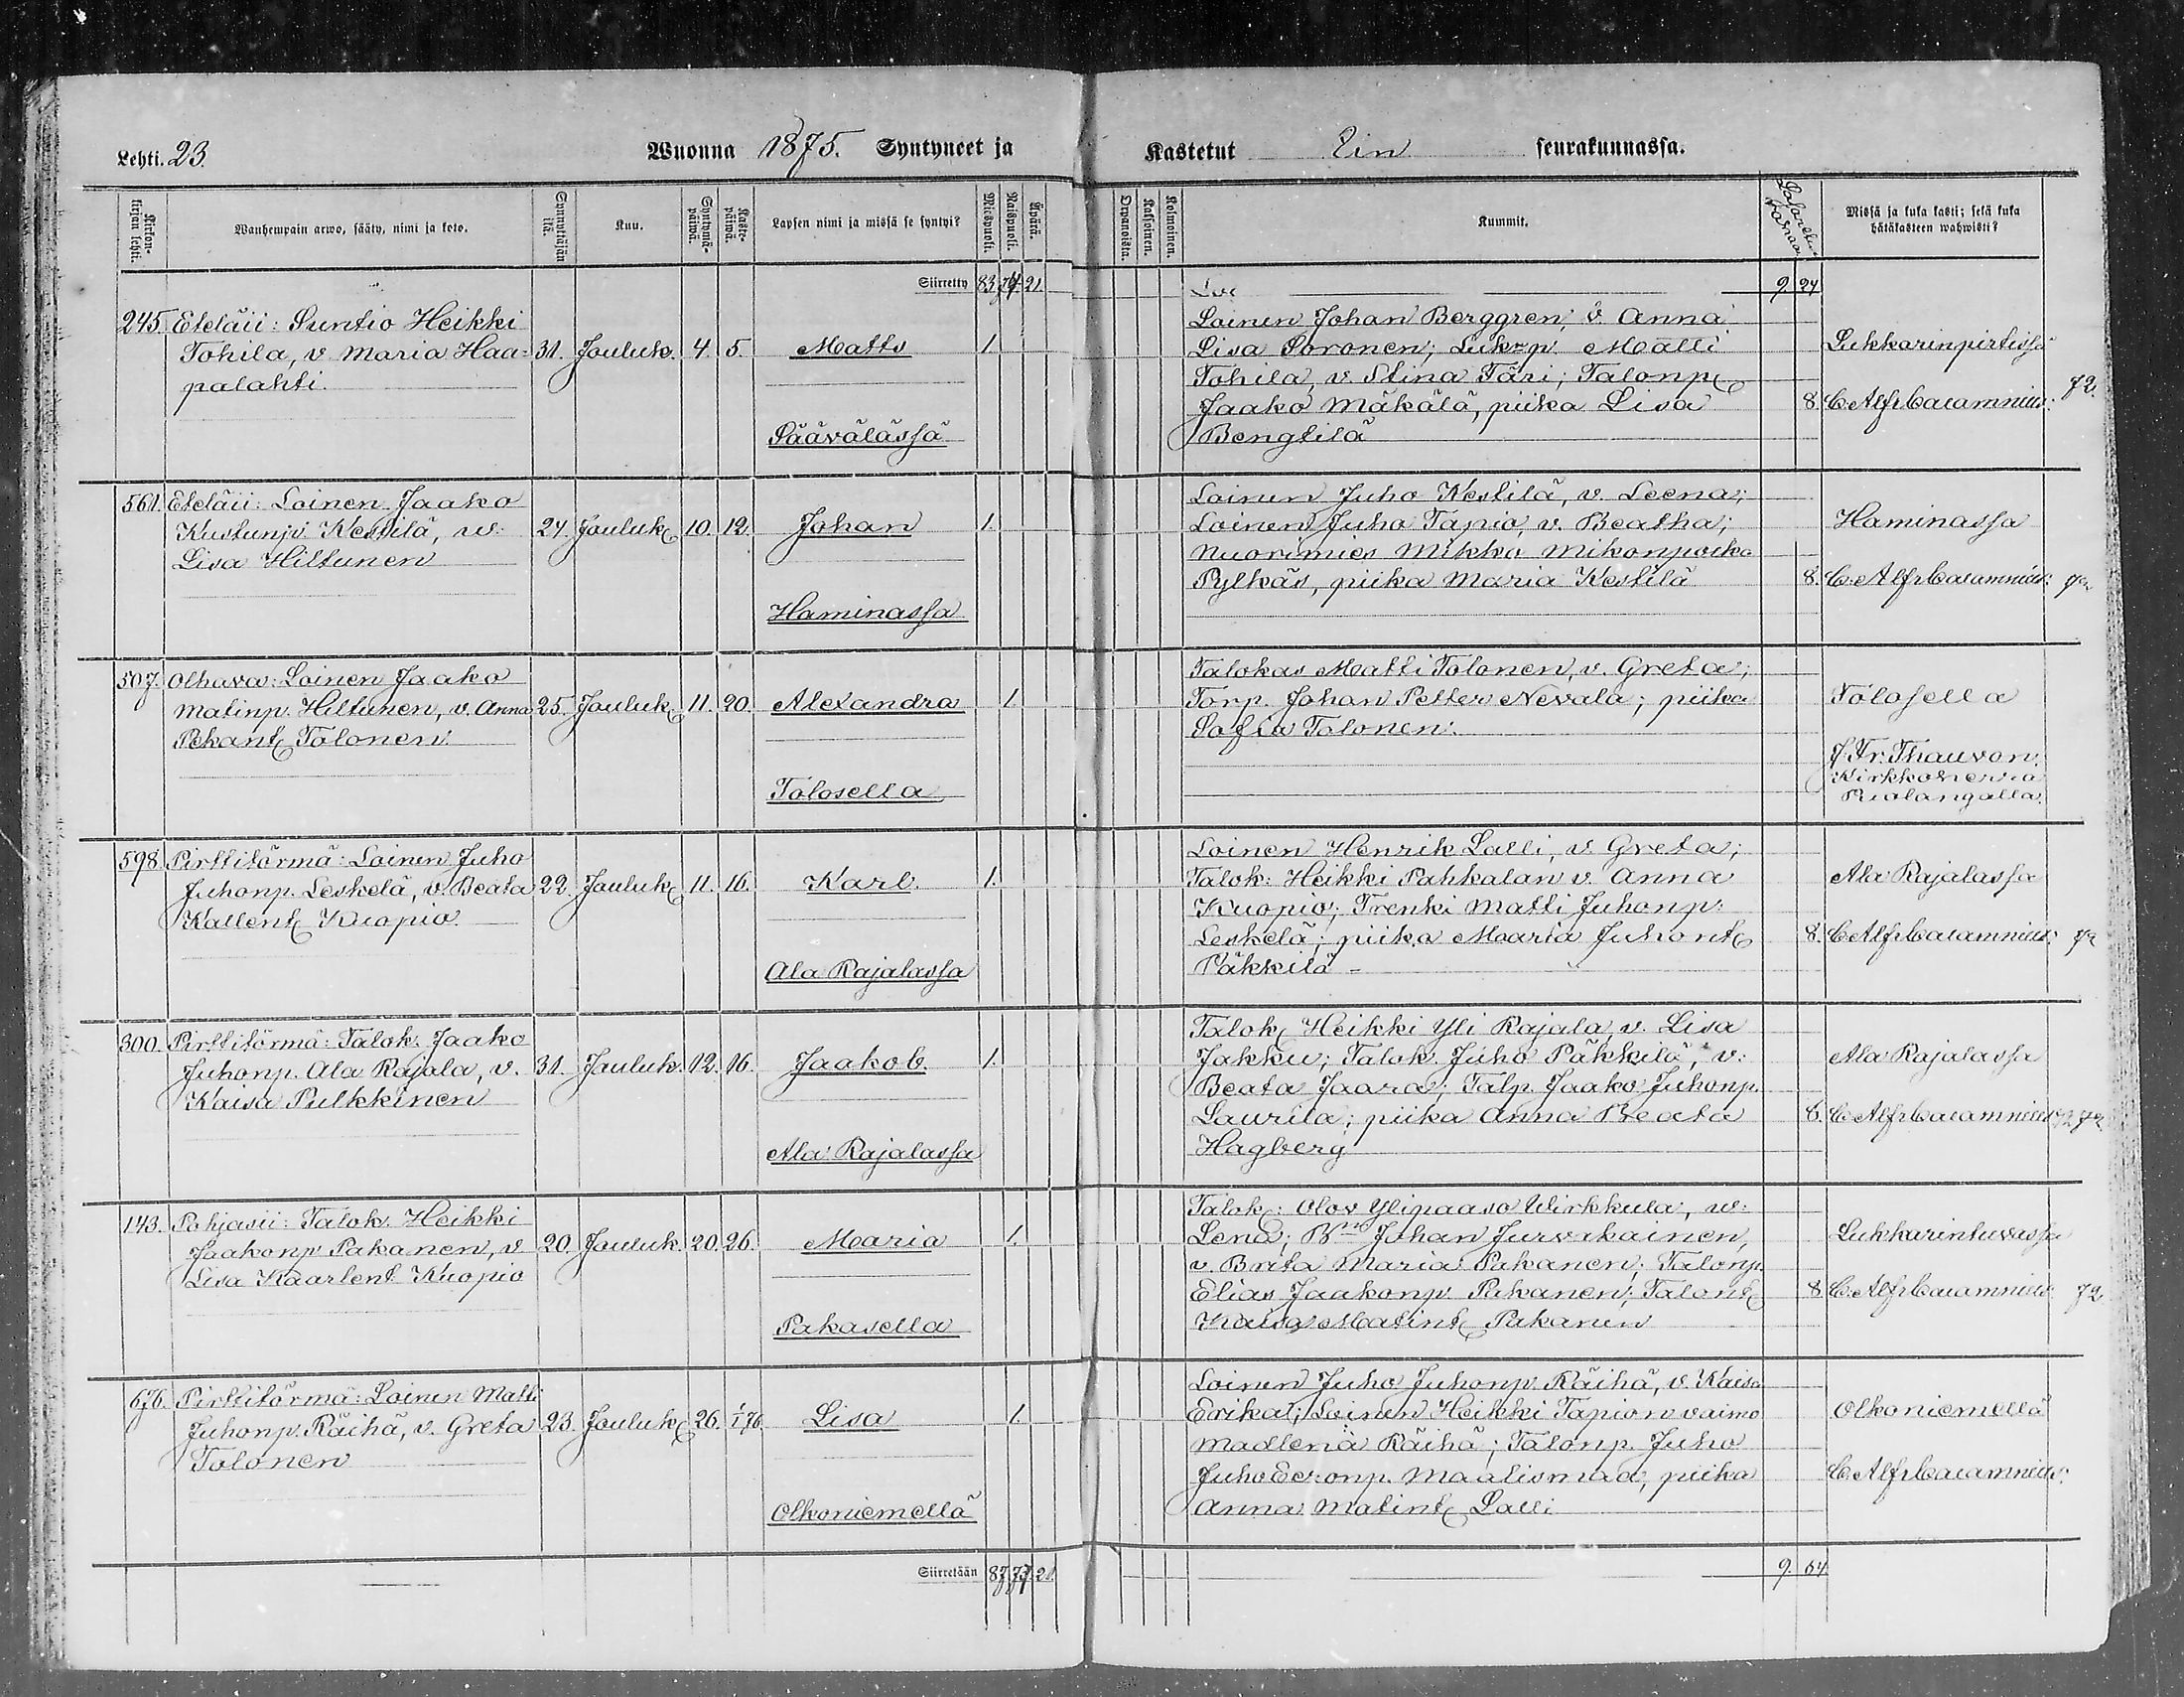 Lehti. 23.
Wuonna 1875. Syntyneet ja
Kastetut Iin seurakunnassa.
Kirkonkirjan lehti.
Wanhempain arwo, sääty, nimi ja koto.
Synnyttäjän ikä.
Kuu.
Syntymäpäiwä.
Kastepäiwä.
Lapsen nimi ja missä se syntyi?
Miespuoli.
Naispuoli.
Äpärä.
Orwanoista.
Kaksoinen.
Kolmoinen.
Kummit.
Missä ja kuka kasti; sekä kuka
hätäkasteen wahwisti?
Siirretty 83. 74. 21.
9. 24
245. Eteläii: Suntio Heikki
Tohila, v. Maria Haa- 31. Jouluk. 4. 5. Matts 1.
palahti.
Päävälässä
Loinen Johan Berggren, v. Anna
Lisa Soronen; Luk:p. Matti
Tohila, v. Stina Täri; Talonp.
Jaako Mäkälä, piika Lisa
Bengtilä
Lukkarinpirtissä
8. C. Alfr. Cajamnius. 72.
561. Eteläii: Loinen Jaako
Kustunp. Kestilä, w. 27. Jouluk. 10. 12. Johan 1.
Lisa Hiltunen
Haminassa
Loinen Juho Kestilä, v. Leena;
Loinen Juho Tapio, v. Beatha;
Nuorimies Mikko Mikonpoika
Pylkäs, piika Maria Kestilä
Haminassa
8. C. Alfr. Cajamnius.
507. Olhava: Loinen Jaako
Matinp. Hiltunen, v. Anna 25. Jouluk. 11. 20. Alexandra 1.
Pekant. Tolonen
Tolosella
Talokas Matti Tolonen, v. Greta;
Torp. Johan Petter Nevala; piika
Sofia Tolonen.
Tolosella
J. Fr. Thauvon.
Kirkkoherra
Pudangalla.
598. Pirttitörmä: Loinen Juho
Juhonp. Leskelä, v. Beata 22. Jouluk. 11. 16. Karl 1.
Kallent. Kuopio.
Ala Rajalassa
Loinen Henrik Lalli, v. Greta;
Talok: Heikki Pahkalan v. Anna
Kuopio; Trenki Matti Juhonp.
Leskelä; piika Maaria Juhont.
Päkkilä -
Ala Rajalassa
8. C. Alfr. Cajamnius.
300. Pirttitörmä: Talok. Jaako
Juhonp. Ala Rajala, v. 31. Jouluk. 12. 16. Jaakob. 1.
Kaisa Pulkkinen
Ala Rajalassa
Talok. Heikki Yli Rajala, v. Lisa
Jakku; Talok. Juho Päkkilä, v.
Beata Jaara; Talp. Jaako Juhonp.
Laurila; piika Anna Beata
Hagberg
Ala Rajalassa
6. C. Alfr. Cajamnius.
143. Pohjasii: Talok. Heikki
Jaakonp. Pakanen, v. 20. Jouluk. 20. 26. Maria 1.
Lisa Kaarlent. Kuopio
Pakasella
Talok: Olov Ylipaaso Wirkkula, w.
Lena; Johan Jurvakainen,
v. Brita Maria Pakanen; Talonp.
Elias Jaakonp. Pakanen; Talont.
Kaisa Matint. Pakanen
Lukkarintuvassa
8. C. Alfr. Cajamnius. 72
676. Pirttitörmä: Loinen Matti
Juhonp. Räihä, v. Greta 23. Jouluk. 26. 1/1 76. Lisa 1.
Tolonen
Olkoniemellä
Loinen Juho Juhonp. Räihä, v. Kaisa
Erika; Loinen Heikki Tapion vaimo
Madlena Räihä; Talonp. Juho
Juho Eeronp. Maalismaa, piika
Anna Matint. Lalli
Olkoniemellä
C. Alfr. Cajamnius.
Siirretään 87. 77. 21.
9. 64